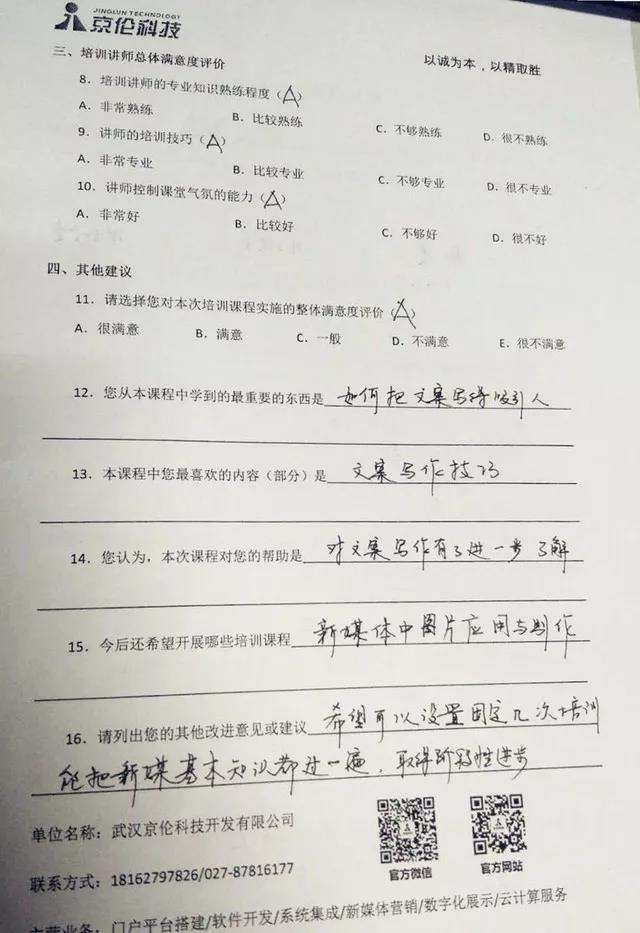 JINGLUN TECHNOLOGY
京伦科技
以诚为本，以精取胜
三、培训讲师总体满意度评价
8. 培训讲师的专业知识熟练程度（A）
A. 非常熟练 B. 比较熟练 C. 不够熟练 D. 很不熟练
9. 讲师的培训技巧（A）
A. 非常专业 B. 比较专业 C. 不够专业 D. 很不专业
10. 讲师控制课堂气氛的能力（A）
A. 非常好 B. 比较好 C. 不够好 D. 很不好
四、其他建议
11. 请选择您对本次培训课程实施的整体满意度评价（A）
A. 很满意 B. 满意 C. 一般 D. 不满意 E. 很不满意
12. 您从本课程中学到的最重要的东西是 如何把文案写得吸引人
13. 本课程中您最喜欢的内容（部分）是 文案写作技巧
14. 您认为，本次课程对您的帮助是 对文案写作有了进一步了解
15. 今后还希望开展哪些培训课程 新媒体中图片应用与制作
16. 请列出您的其他改进意见或建议 希望可以设置固定几次培训
能把新媒基本知识都过一遍，取得阶段性进步
单位名称：武汉京伦科技开发有限公司
联系方式：18162797826/027-87816177
官方微信 官方网站
主营业务：门户平台搭建/软件开发/系统集成/新媒体营销/数字化展示/云计算服务